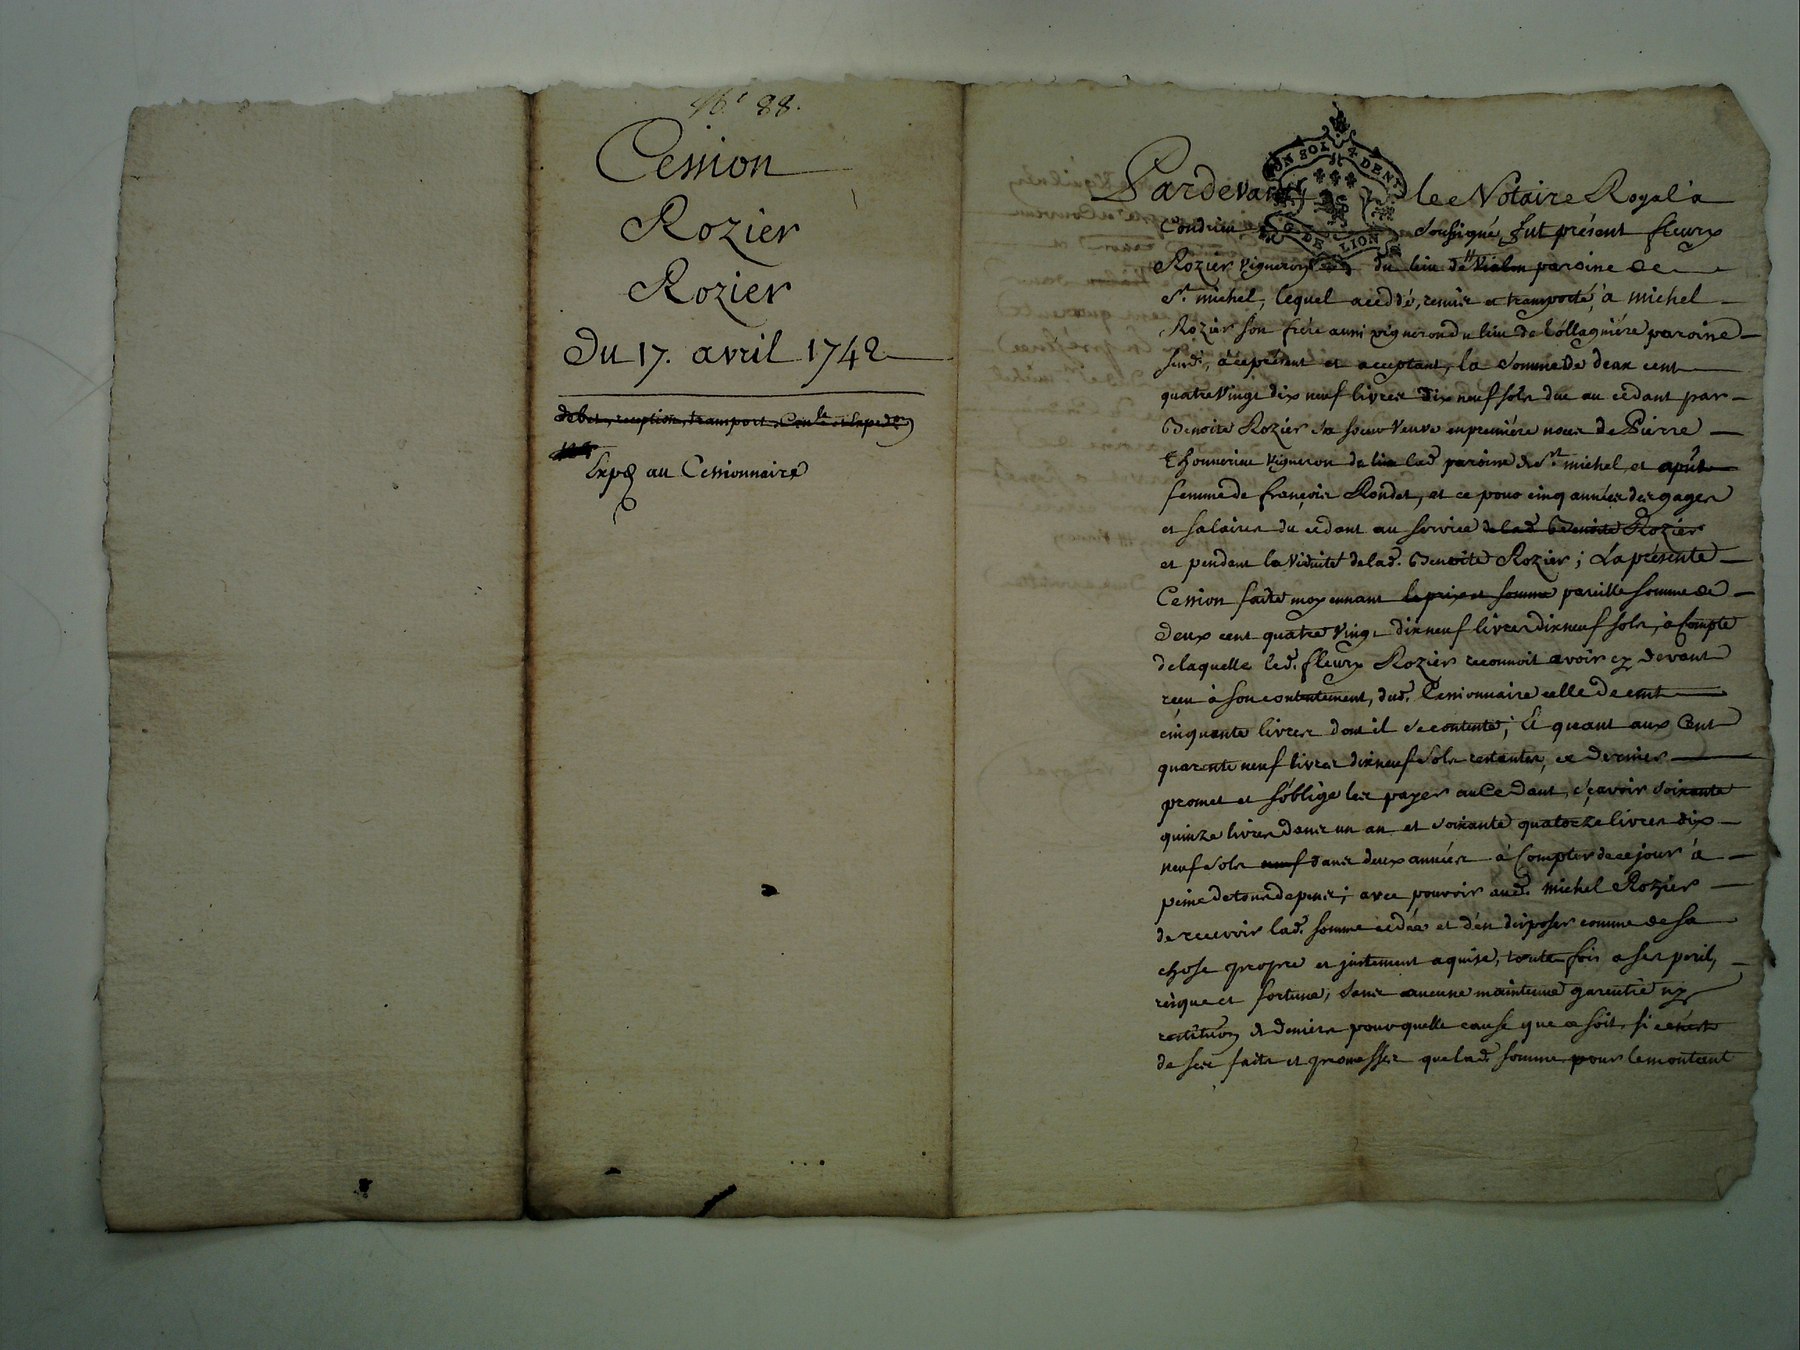 N.° 88.
Cession
Rozier
Rozier
Du 17. avril 1742
debet, reception, transport, Con.le et Exped.on
Exp.é au Cessionnaire
UN SOL 4 DENI
G. DE LION
Pardevant le Notaire Royal à
Condrieu soussigné, fut présent fleury
Rozier vigneron du lieu de Vialon paroisse de
S.t michel, lequel a ceddé, remis et transporté, à michel
Rozier son frére aussi vigneron du lieu de Collagniére paroisse
susd., à ce présent et acceptant, la somme De deux cent
quatre Vingt dix neuf livres dix neuf sols due au cédant par
Benoite Rozier sa soeur Veuve en premiére noces de Pierre
Thonnerieu vigneron de lad. paroisse de S.t michel, et
femme de françois Rondet, et ce pour cinq années des gages
et salaires du cédant au service de lad. Benoite Rozier
et pendant la Viduité de lad. Benoite Rozier; La présente
Cession faite moyennant le prix et somme pareille somme de
Deux cent quatre Vingt dix neuf livres dix neuf sols, à Compte
de laquelle led. fleury Rozier reconnoit avoir cy devant
reçu à son contentement, dud. Cessionnaire celle de cent
cinquante livres dont il se contente; Et quant aux Cent
quarente neuf livres dix neuf sols restantes, ce dernier
promet et s'oblige les payer au Cedant, sçavoir soixante
quinze livres dans un an et soixante quatorze livres dix
neuf sols neuf dans deux années à Compter de ce jour à
peine de tous dépens; avec pouvoir aud. michel Rozier
de recevoir lad. somme cédée et d'en disposer comme de sa
chose propre et justement aquise, toute fois a ses peril,
risque et fortune, sans aucune maintenue garentie ny
restitution de deniers pour quelle cause que ce soit, si ce n'est
de ses faits et promesses que lad. somme pour le montant